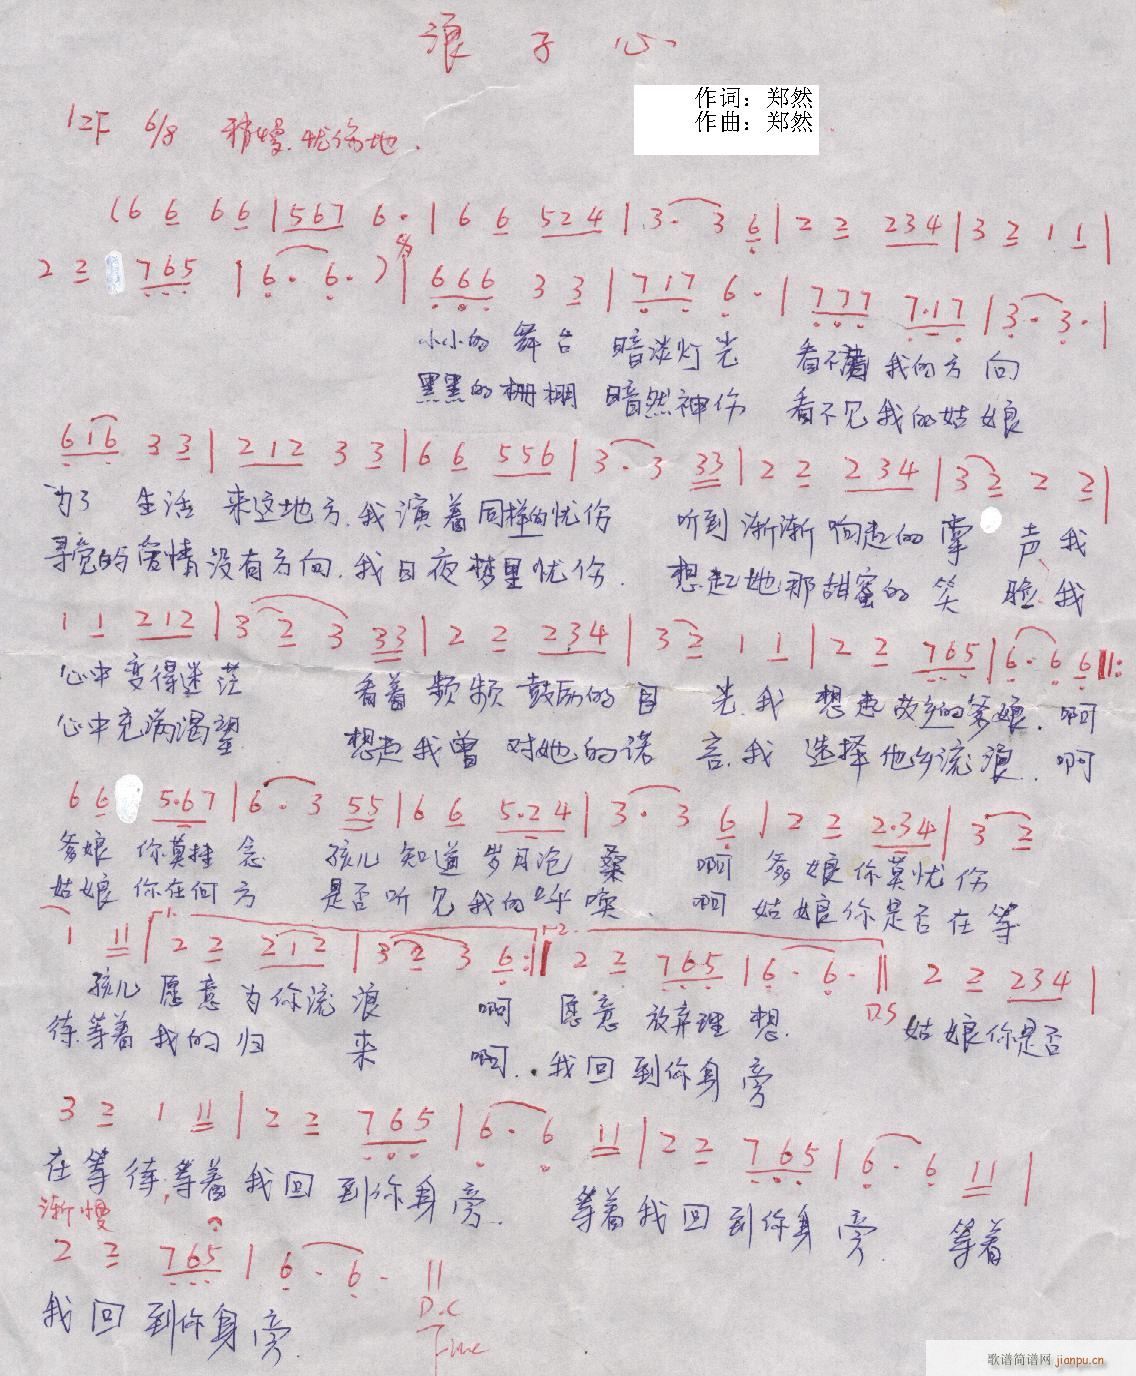 浪子心
作词：郑然
作曲：郑然
1=F 6/8 稍慢.忧伤地.
(6 6 6 6 | 5 6 7 6· | 6 6 5 2 4 | 3· 3 6 | 2 2 2 3 4 | 3 2 1 1 |
2 2 7 6 5 | 6· 6· ) | 6 6 6 3 3 | 7 1 7 6· | 7 7 7 7·1 7 | 3· 3· |
小小的舞台 暗淡灯光 看不清我的方向
黑黑的栅栏 暗然神伤 看不见我的姑娘
6 1 6 3 3 | 2 1 2 3 3 | 6 6 5 5 6 | 3· 3 3 3 | 2 2 2 3 4 | 3 2 2 2 |
为了 生活 来这地方.我演着同样的忧伤 听到渐渐响起的掌 声我
寻觅的爱情没有方向.我日夜梦里忧伤. 想起她那甜蜜的笑 脸我
1 1 2 1 2 | 3 2 3 3 3 | 2 2 2 3 4 | 3 2 1 1 | 2 2 7 6 5 | 6· 6 6 ||:
心中变得迷茫 看着频频鼓励的目 光.我 想起故乡的爹娘.啊
心中充满渴望 想起我曾对她的诺 言.我 选择他乡流浪.啊
6 6 5·6 7 | 6· 3 5 5 | 6 6 5·2 4 | 3· 3 6 | 2 2 2·3 4 | 3 2
爹娘 你莫挂念 孩儿知道岁月沧桑 啊 爹娘你莫忧伤
姑娘你在何方 是否听见我的呼唤. 啊 姑娘你是否在等
1 1 1 | 1. 2 2 2 1 2 | 3 2 3 6 :|| 2. 2 2 7 6 5 | 6· 6· || 2 2 2 3 4 |
孩儿愿意为你流浪 啊 愿意放弃理想. D.S 姑娘你是否
待.等着我的归 来 啊..我回到你身旁
3 2 1 1 1 | 2 2 7 6 5 | 6· 6 1 1 | 2 2 7 6 5 | 6· 6 1 1 |
在等待,等着我回到你身旁. 等着我回到你身旁. 等着
渐慢
2 2 7 6 5 | 6· 6· ||
我回到你身旁. D.C
Fine
歌谱简谱网 jianpu.cn